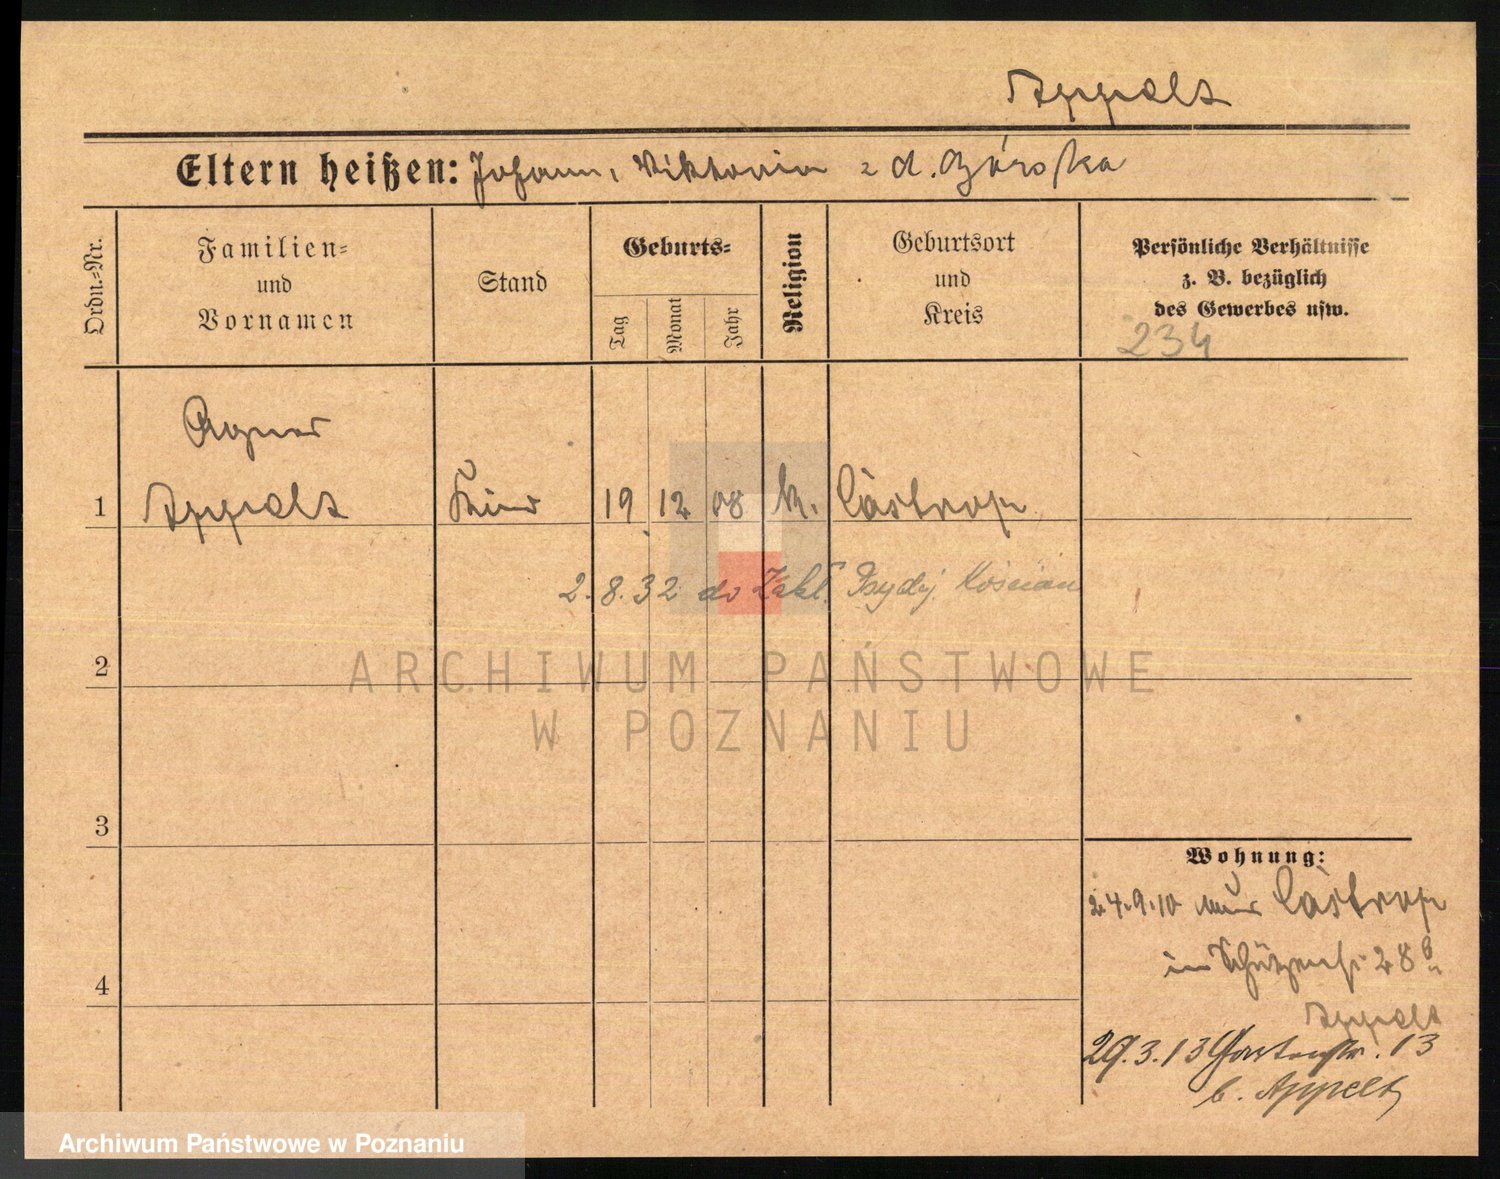 Appelt
Eltern heißen: Johann, Viktoria z d. Górska
Ordn.-Nr.
Familien-
und
Vornamen
Stand
Geburts-
Tag
Monat
Jahr
Religion
Geburtsort
und
Kreis
Persönliche Verhältnisse
z. B. bezüglich
des Gewerbes usw.
234
Agnes
1 Appelt Kind 19 12 08 k. Castrop
2.8.32 do Zakł. Psydj. Kościan
2
ARCHIWUM PAŃSTWOWE
W POZNANIU
3
Wohnung:
24.9.10 aus Castrop
in Schützenstr 28
4
Appelt
29.3.13 Gartenstr. 13
b. Appelt
Archiwum Państwowe w Poznaniu